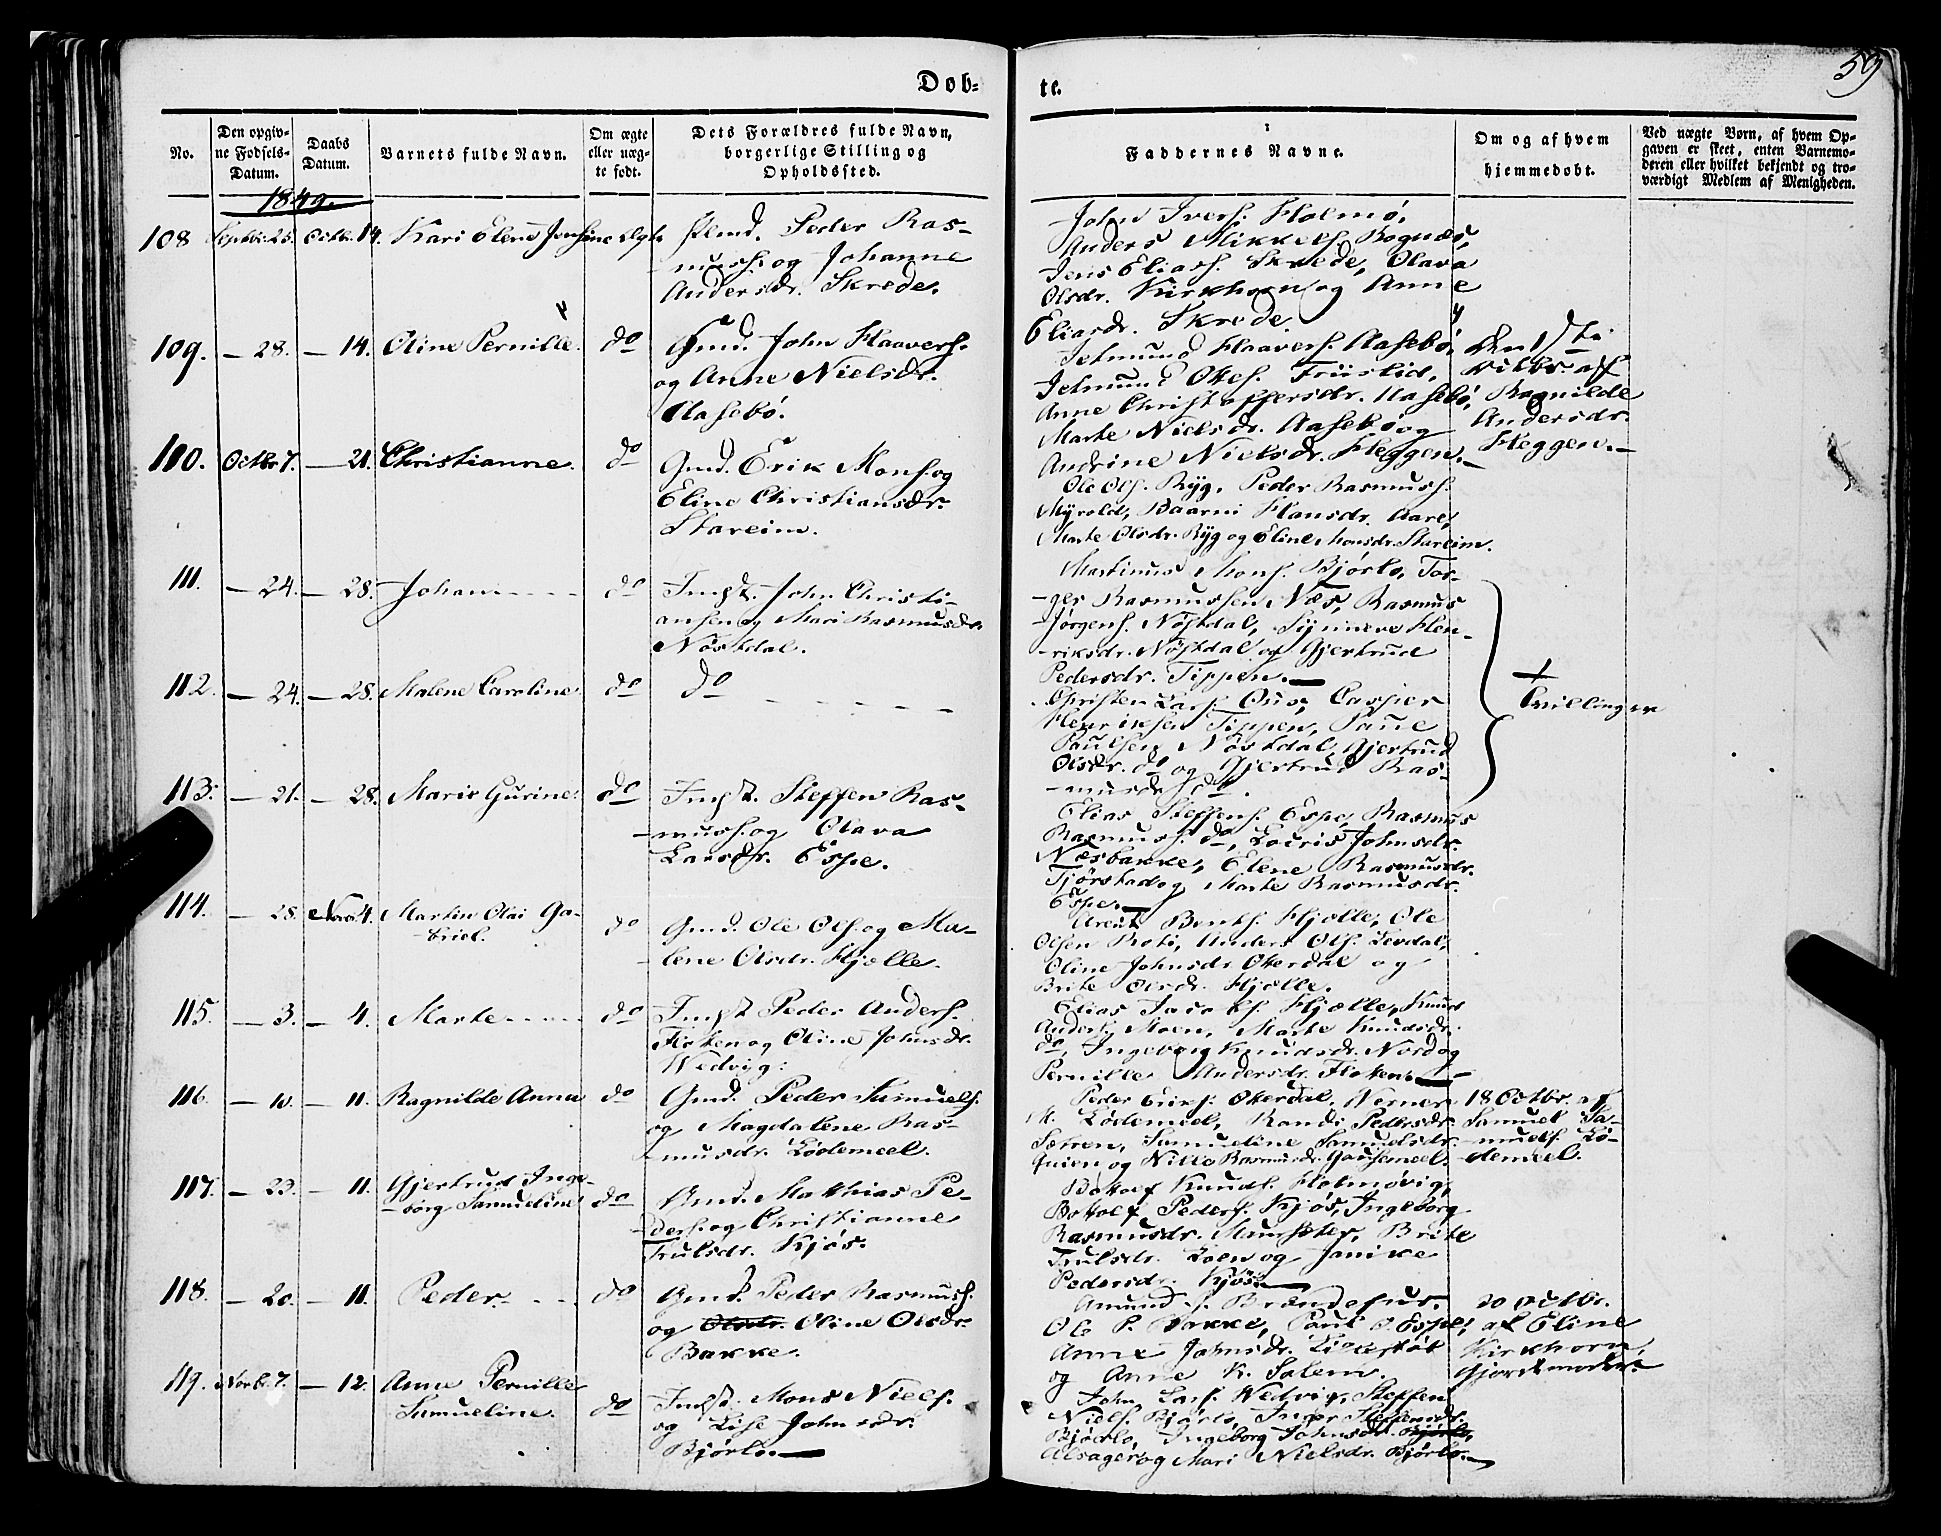 59
Døb- te.
No.
Den opgiv-
ne Fødsels-
Datum.
Daabs
Datum.
Barnets fulde Navn.
Om ægte
eller uæg-
te født.
Dets Forældres fulde Navn,
borgerlige Stilling og
Opholdssted.
Faddernes Navne.
Om og af hvem
hjemmedøbt.
Ved uægte Børn, af hvem Op-
gaven er skeet, enten Barnemo-
deren eller hvilket bekjendt og tro-
værdigt Medlem af Menigheden.
1849.
108 Septbr 25. Octbr. 14. Kari Elene Jensine Ægte
Peder Ras-
mus. og Johanne
Andersdr. Skrede.
John Ivers. Holmö,
Anders Mikkels. Bognæs,
Jens Elias. Skrede, Olava
Olsdr. Kirkhorn og Anne
Eliasdr. Skrede
109. — 28. — 14. Oline Pernille. do
Gmd. John Haavers.
og Anne Nielsdr.
Aasebö.
Jetmund Haavers. Aasebö,
Jetmund Ottes. Friislid,
Anne Christoffersdr. Aasebö,
Marte Nielsdr. Aasebö og
Andrine Nielsdr. Heggen.
den 1ste
Octbr af
Ragnilde
Andersdr.
Heggen.
110. Octbr 7. — 21. Christianne. do
Gmd. Erik Mons. og
Eline Christiansdr.
Stareim.
Ole Ols. Ryg, Peder Rasmus.
Myrold, Baarni Hansdr. Aare,
Marte Olsdr. Ryg og Eline Monsdr. Stareim.
111. — 24. — 28. Johan do
Indst. John Christi-
ansen og Mari Rasmusdr.
Nöstdal.
Martinus Mons. Björlo, Tor-
ger Rasmussen Næs, Rasmus
Jörgens. Nöstdal, Synneve Hen-
riksdr. Nöstdal og Gjertrud
Pedersdr. Tippen.
112. — 24. — 28. Malene Caroline do
do
Christen Lars. Ous, Casper
Henriksen Tippen, Paul
Paulsen Nöstdal, Gjertrud
Olsdr. do og Gjertrud Ras-
musdr do.
+
Tvillinger
113. — 21. — 28. Marie Gurine. do
Indst. Steffen Ras-
mus. og Olava
Larsdr. Espe.
Elias Steffens. Espe, Rasmus
Rasmus. do, Lovris Johnsdr.
Næsbakke, Elene Rasmusdr.
Tjörstad og Marte Rasmusdr.
Espe.
114. — 28. Novbr 4. Martin Olai Ga-
briel. do
Gmd. Ole Ols. og Ma-
lene Olsdr. Hjelle.
Arent Bents. Hjelle, Ole
Olsen Roti, Anders Ols. Levdal,
Oline Johnsdr Otterdal og
Brite Olsdr. Hjelle.
115. — 3. — 4. Marte do
Indst Peder Anders.
Floten og Oline Johnsdr.
Wedvig.
Elias Jacobs. Hjelle, Knud
Anders. Moen, Marte Knudsdr.
do, Ingeborg Knudsdr. Nord og
Pernille Andersdr. Floten.
116. — 10. — 11. Ragnilde Anna do
Gmd. Peder Samuels.
og Magdalene Ras-
musdr. Lödemeel.
Peder Otterdal, Werner
Lödemeel, Randi Pedersdr.
Sætren, Samueline Samuelsdr.
og Nille Rasmusdr. Gausemeel.
18 Octbr. af
Samuel Sa-
muels. Lö-
demeel.
117. — 23. — 11. Gjertrud Inge-
borg Samueline do
Gmd. Matthias Pe-
ders. og Christianne
Trulsdr. Kjös.
Bottolf Knuds. Holmövig,
Bottolf Peders. Kjös, Ingeborg
Rasmusdr. Munster, Brite
Trulsdr. Loen og Janike
Pedersdr. Kjös.
118. — 20. — 11. Peder do
Gmd. Peder Rasmus.
og Oline Olsdr.
Bakke.
Amund
Ole P. Bakke, Paul Espe,
Anne Johnsdr.
og Anne K. Solem.
20 Octbr.
af Eline
Kirkhorn,
Gjordemoder.
119. Novbr. 7. — 12. Anne Pernille
Samueline. do
Indst. Mons Niels.
og Lise Johnsdr.
Björlo.
John Lars. Wedvig, Steffen
Niels. Björlo, Inger
Björlo, Ingeborg Johnsdr.
og Mari Nielsdr. Björlo.